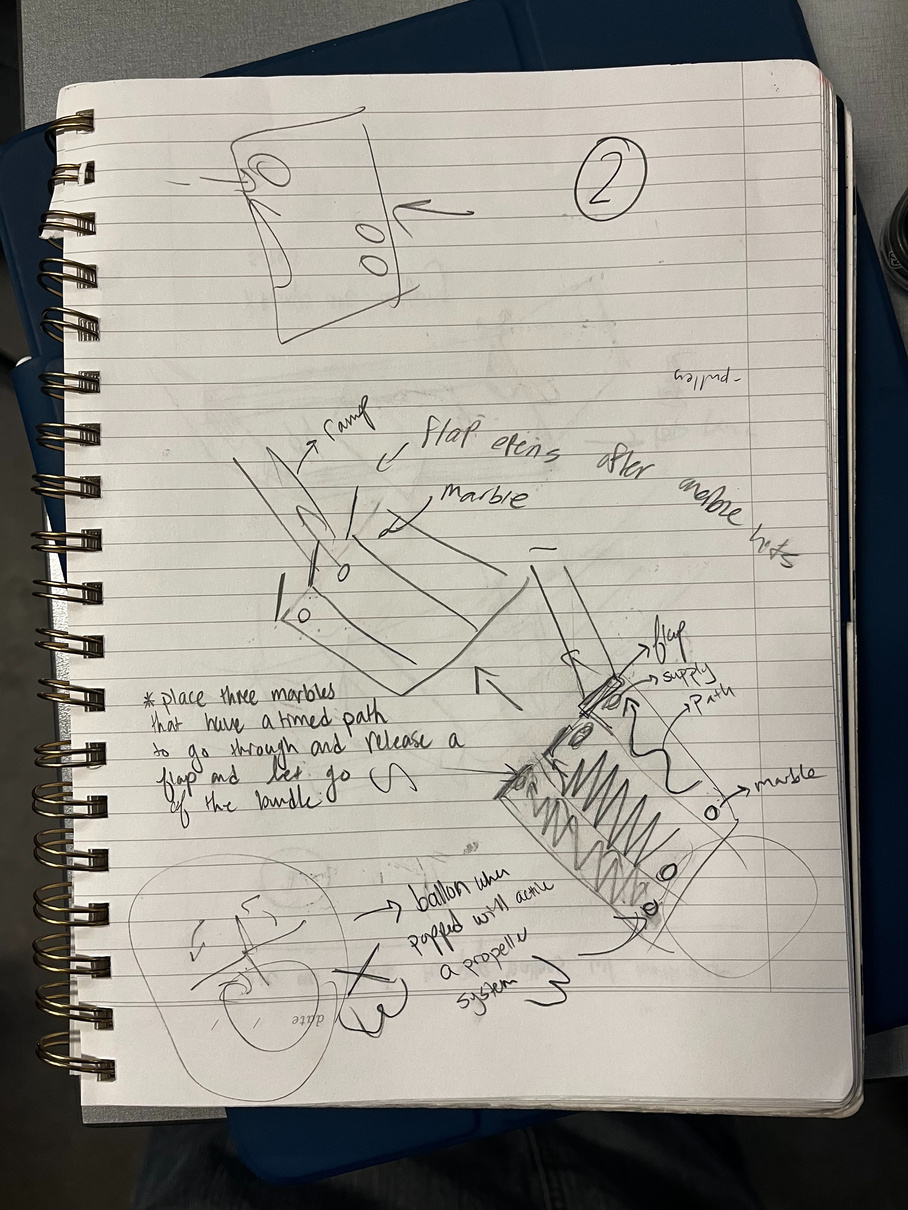 2
-pulley
ramp
flap opens after marble hits
marble
flap
supply
path
marble
* place three marbles
that have a timed path
to go through and release a
flap and let go
of the bundle
ballon when
popped will active
a propeller
system
date